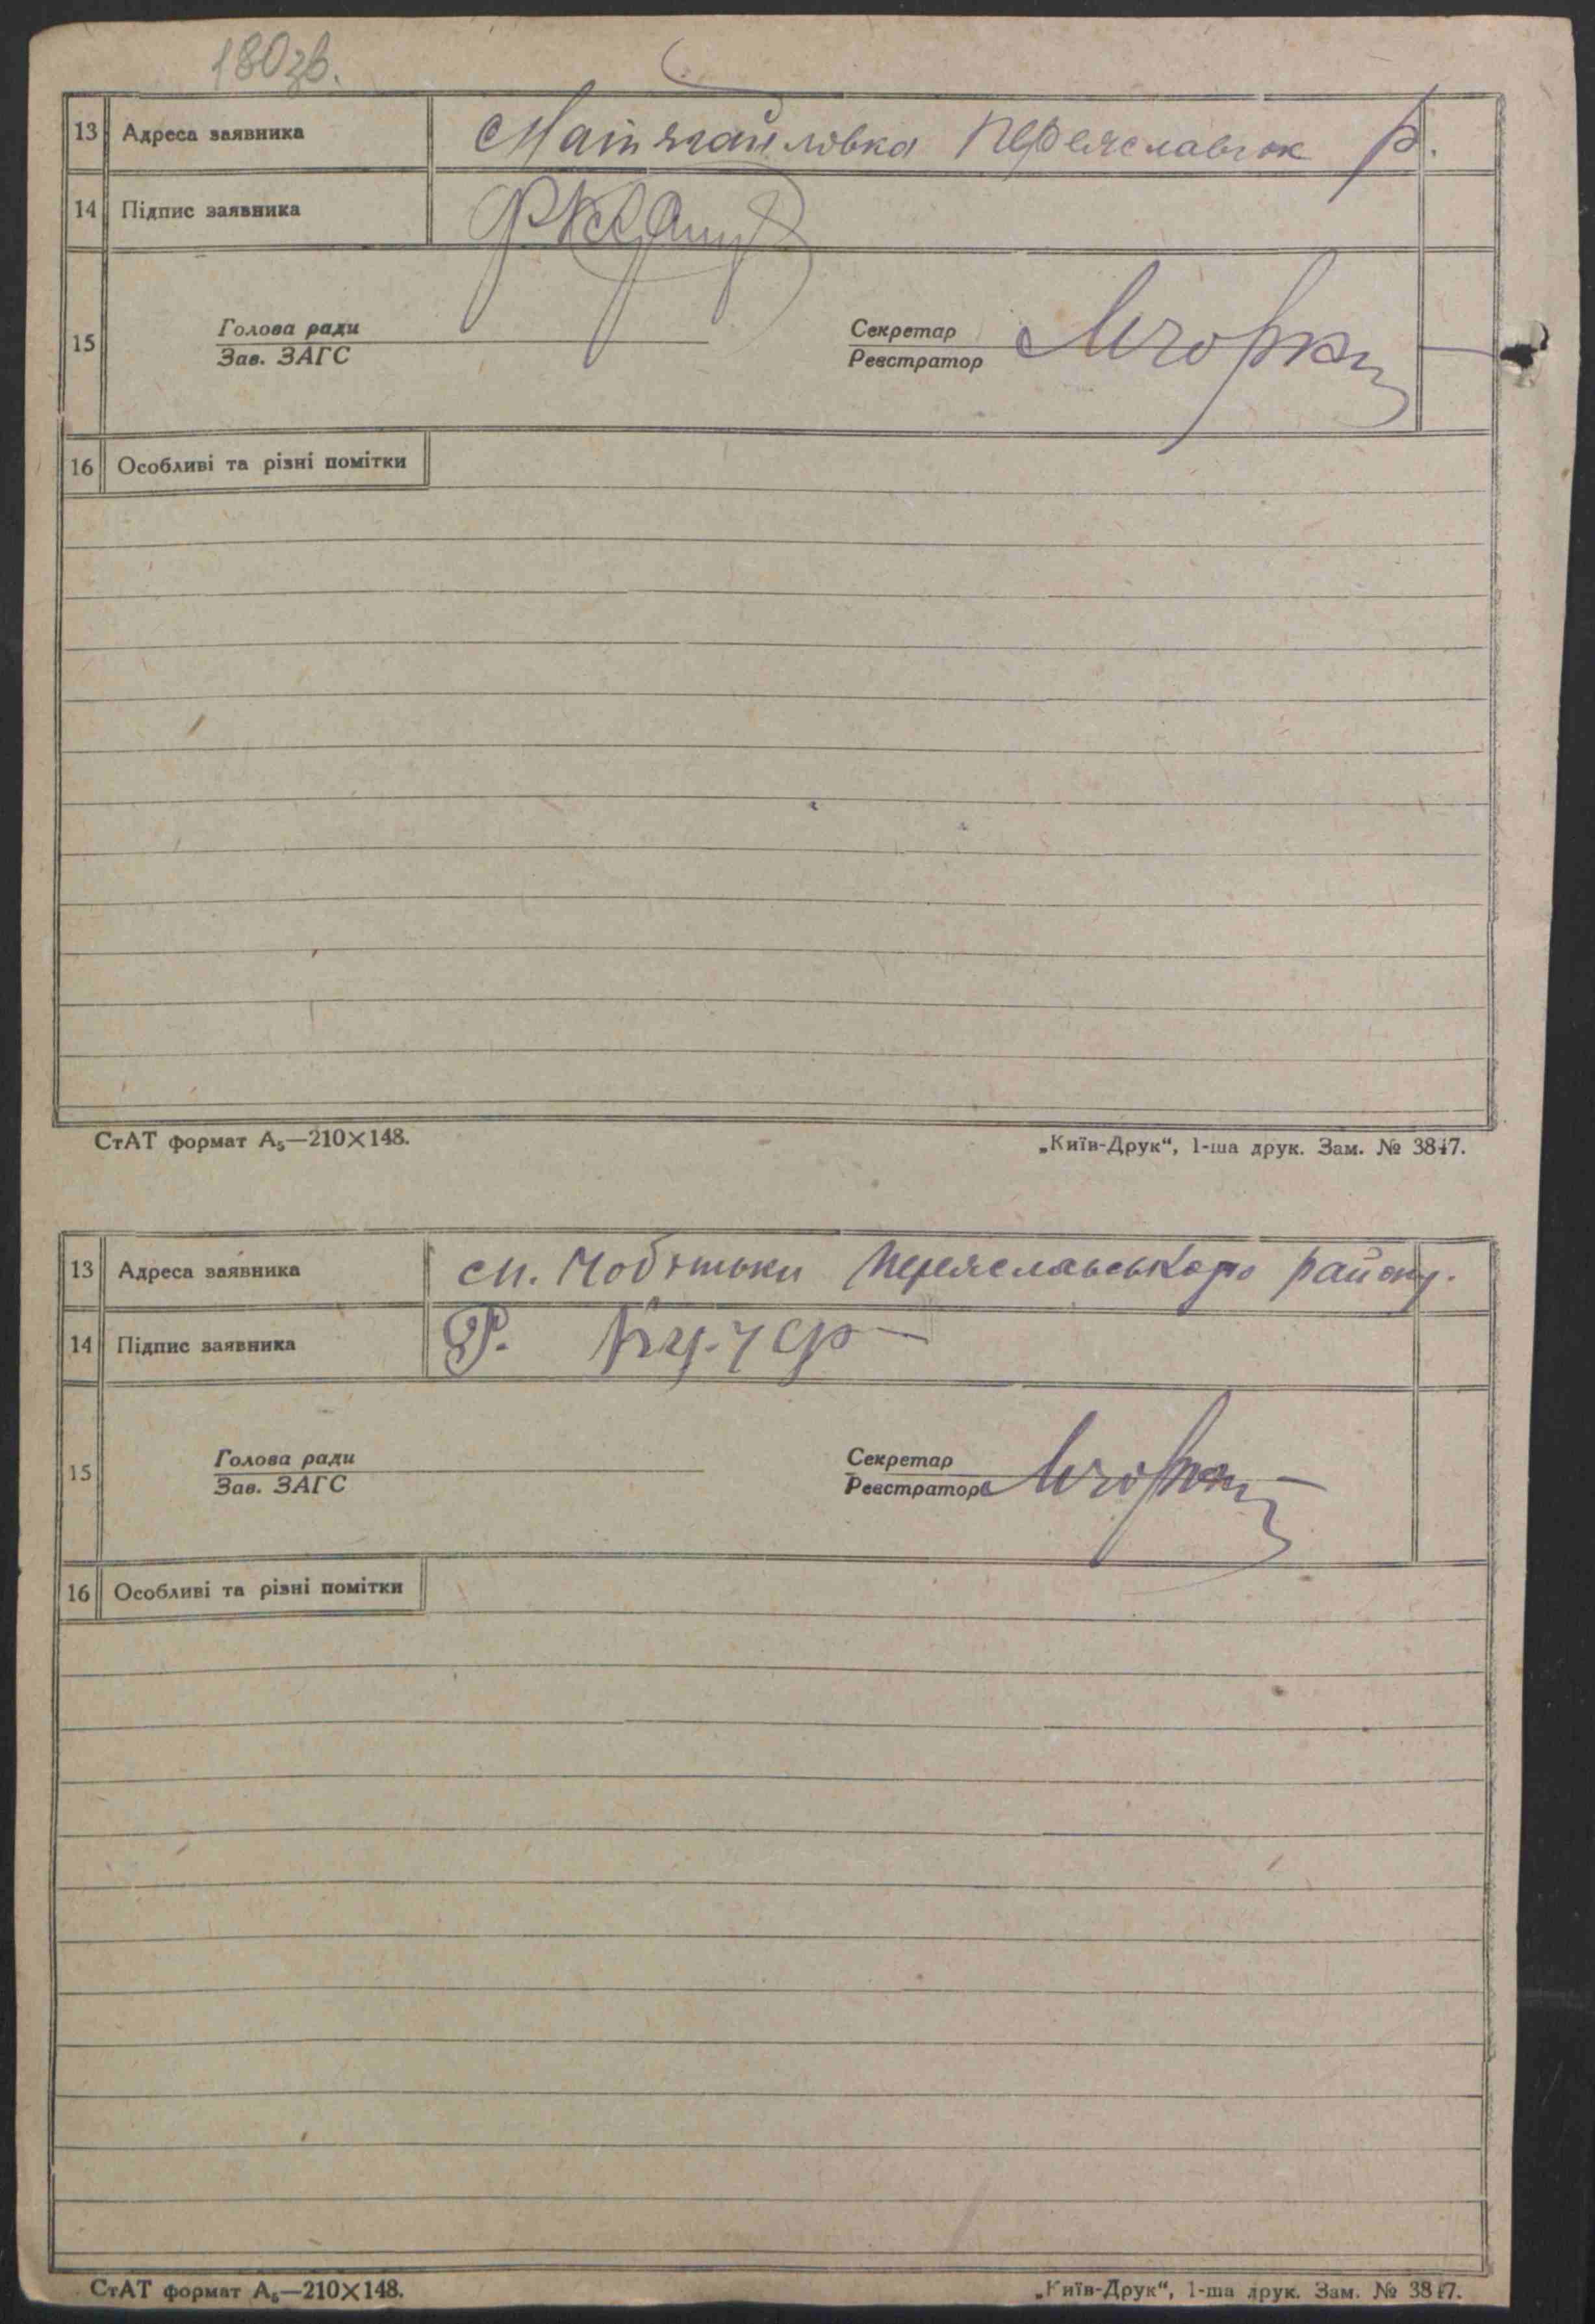 180зв.
13 Адреса заявника Переяславск р.
14 Підпис заявника
15 Голова ради Секретар
Зав. ЗАГС Реєстратор
16 Особливі та різні помітки
СтАТ формат А₅—210×148. „Київ-Друк“, 1-ша друк. Зам. № 3847.
13 Адреса заявника Переяславського району.
14 Підпис заявника
15 Голова ради Секретар
Зав. ЗАГС Реєстратор
16 Особливі та різні помітки
СтАТ формат А₅—210×148. „Київ-Друк“, 1-ша друк. Зам. № 3847.